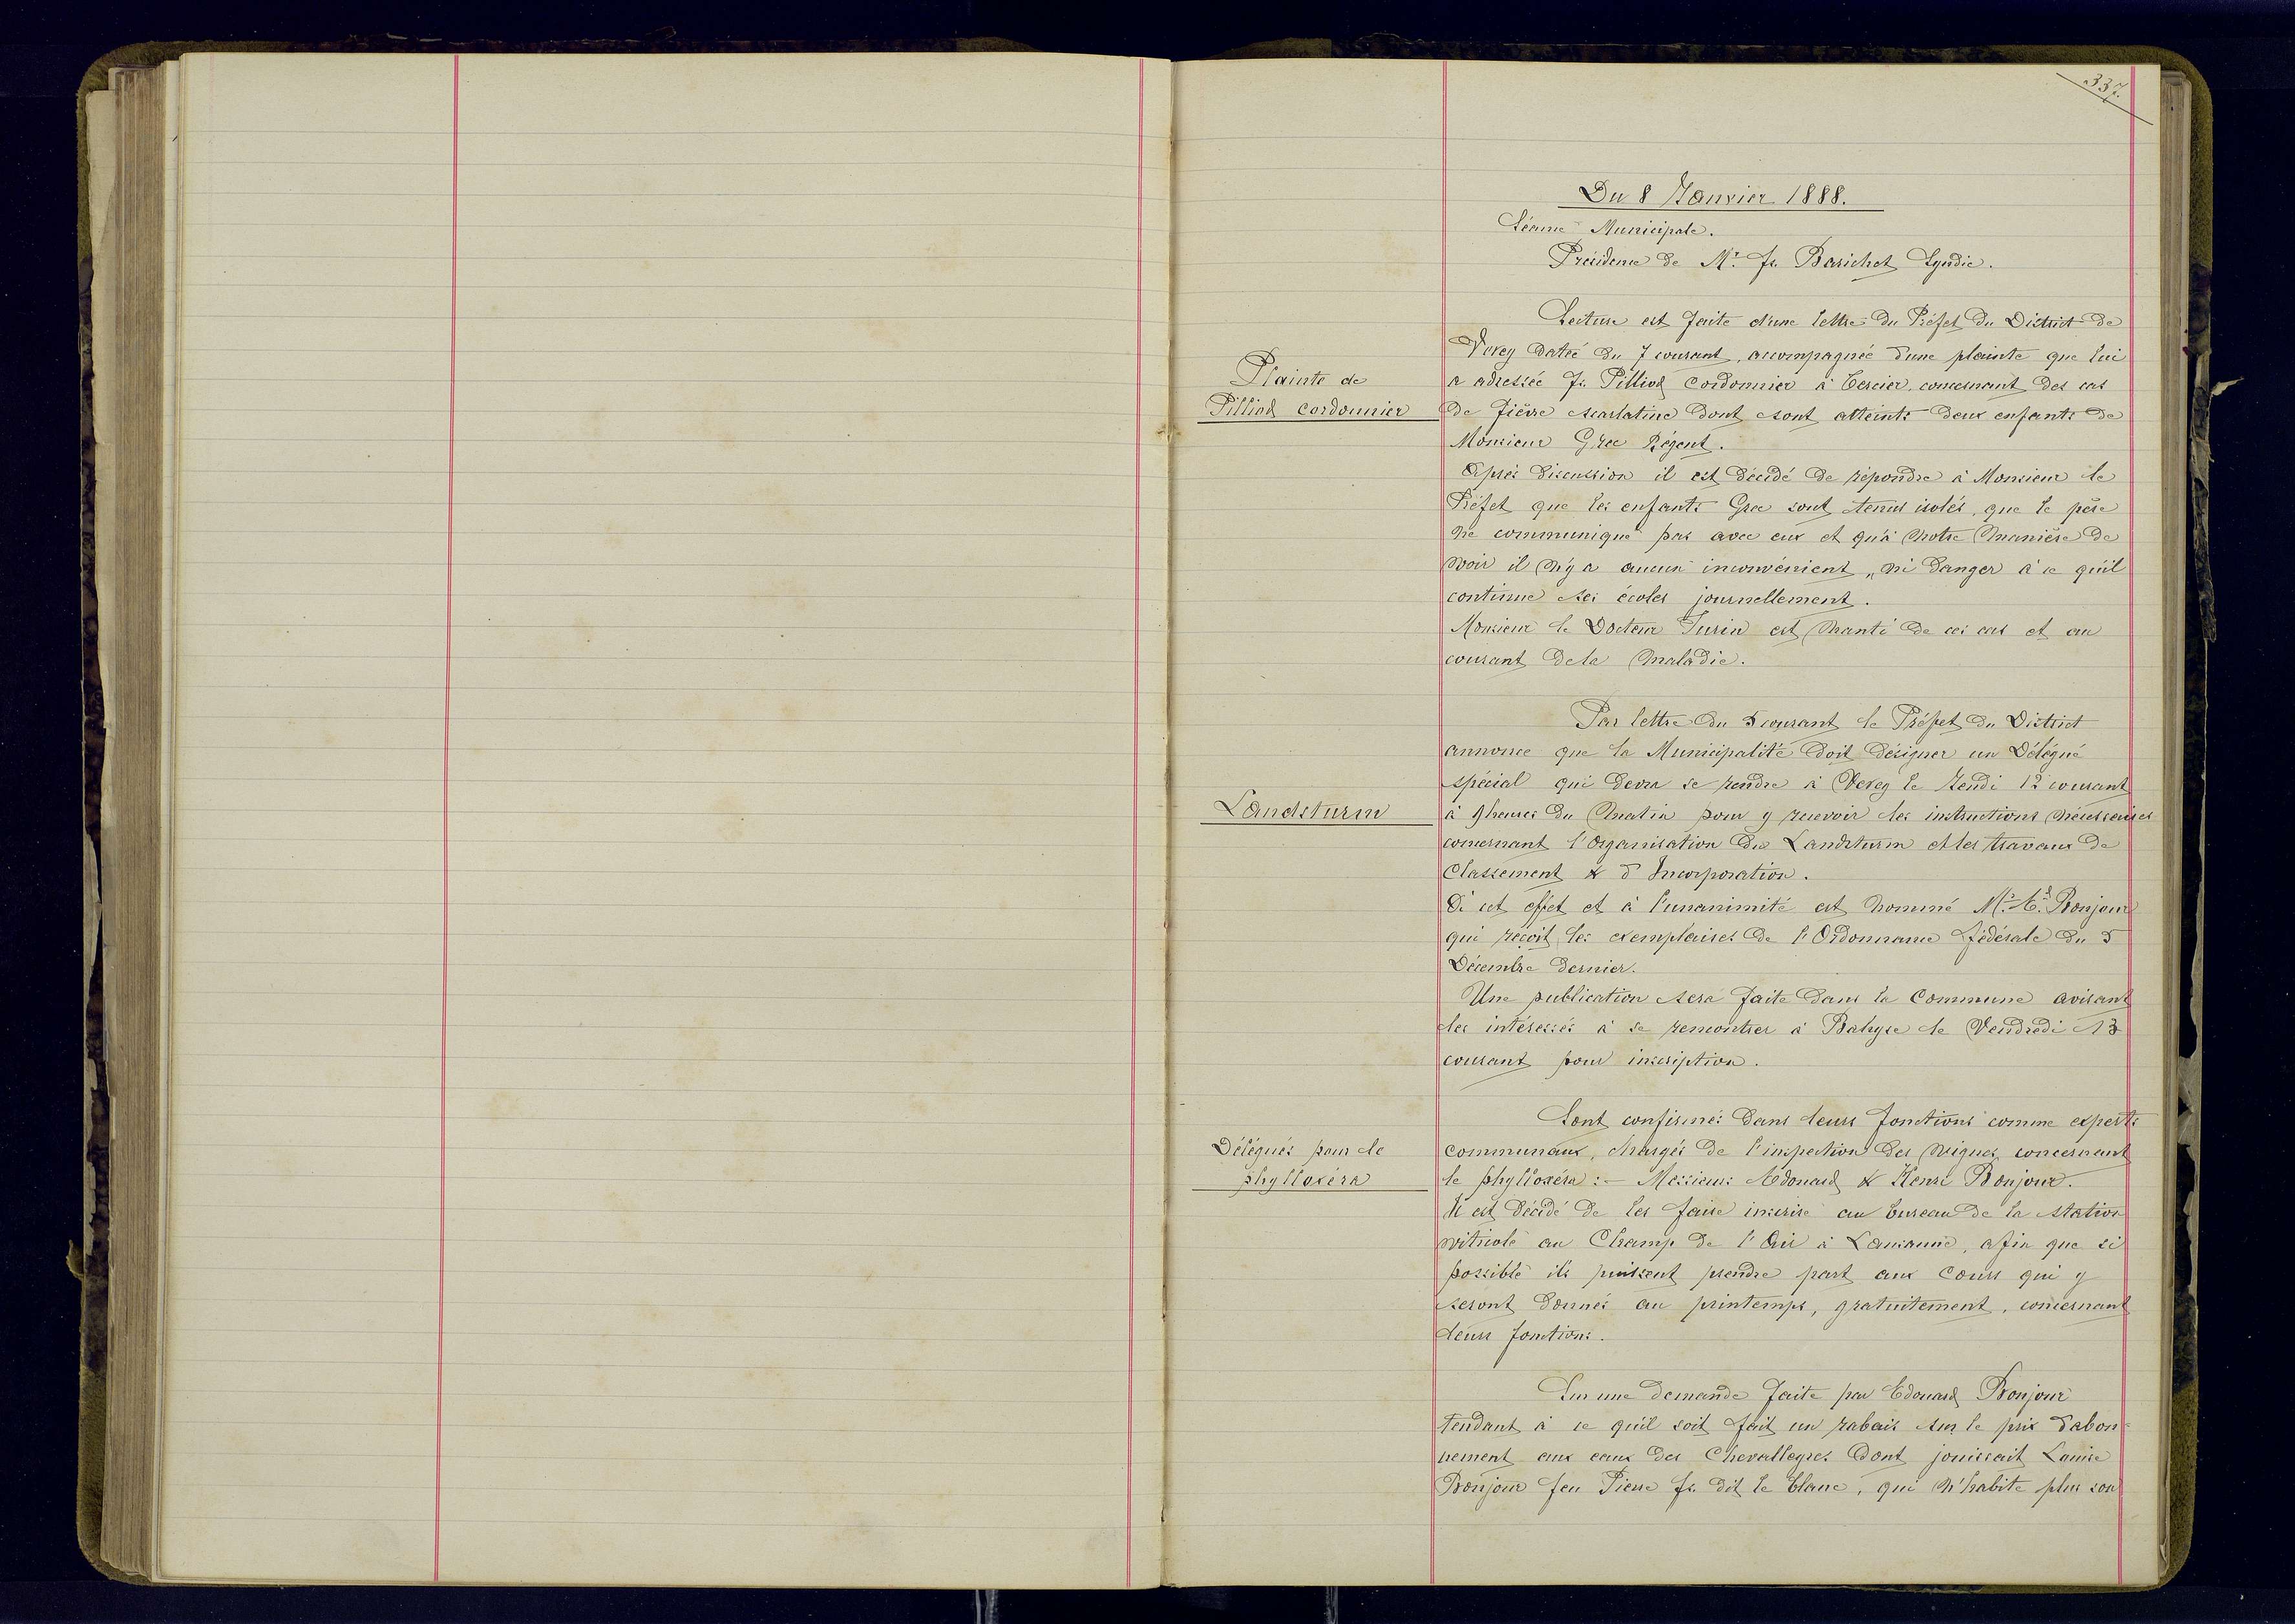 337.
Du 8 Janvier 1888.
Séance Municipale.
Présidence de Mr. Fs. Barichet Syndic.
Lecture est faite d'une lettre du Préfet du District de
Vevey datée du 7 courant, accompagnée d'une plainte que lui
Plainte de
Pilliod cordonnier
a adressée Fs. Pilliod Cordonnier à Cercier, concernant des cas
de fièvre scarlatine dont sont atteints deux enfants de
Monsieur Grec Régent.
Après discussion il est décidé de répondre à Monsieur le
Préfet que les enfants Grec sont tenus isolés, que le père
ne communique pas avec eux et qu'à notre manière de
voir il n'y a aucun inconvénient, ni danger à ce qu'il
continue ses écoles journellement.
Monsieur le Docteur Turin est nanti de ces cas et au
courant de la maladie.
Par lettre du 5 courant le Préfet du District
annonce que la Municipalité doit désigner un Délégué
spécial qui devra se rendre à Vevey le Jeudi 12 courant
Landsturm
à 9 heures du matin pour y recevoir les instructions nécessaires
concernant l'Organisation du Landsturm et les travaux de
Classement & d'Incorporation.
A cet effet et à l'unanimité est nommé Mr. Ed. Bonjour
qui reçoit les exemplaires de l'Ordonnance fédérale du 5
Décembre dernier.
Une publication sera faite dans la Commune avisant
les intéressés à se rencontrer à Bahyse le Vendredi 13
courant pour inscription.
Sont confirmés dans leurs fonctions comme experts
Délégués pour le
phylloxéra
communaux, chargés de l'inspection des vignes concernant
le phylloxéra :- Messieurs Edouard & Henri Bonjour.
Il est décidé de les faire inscrire au bureau de la station
viticole au Champ de l'Air à Lausanne, afin que si
possible ils puissent prendre part aux Cours qui y
seront donnés au printemps, gratuitement, concernant
leurs fonctions.
Sur une demande faite par Edouard Bonjour
tendant à ce qu'il soit fait un rabais sur le prix d'abon-
nement aux eaux des Chevalleyres dont jouissait Louise
Bonjour feu Pierre Fs. dit le blanc, qui n'habite plus son